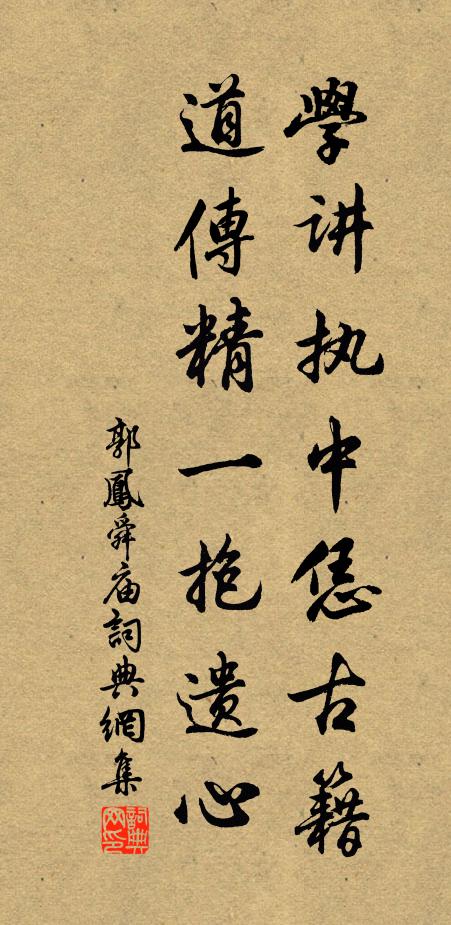 學讲执中恁古籍
道傳精一抱遗心
郭鳳舜庙詞典網集
詞典网印